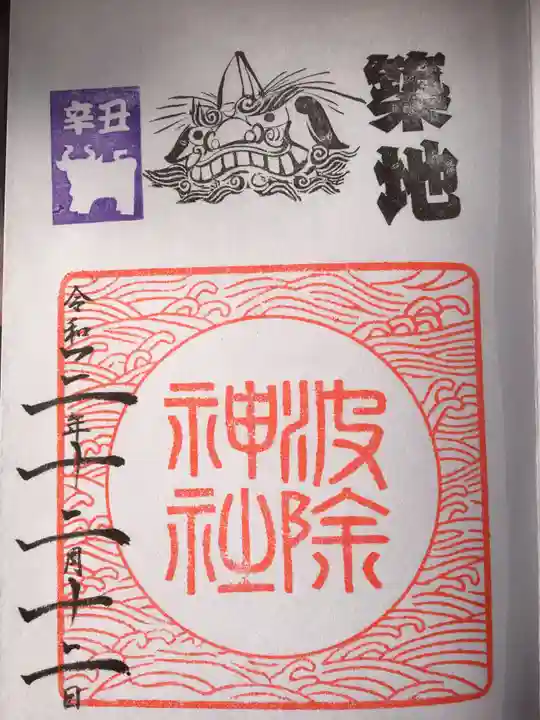 築地
辛丑
波除
神社
令和二年十二月十二日